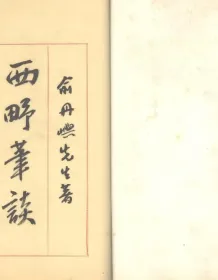 俞丹嶼先生著
西野筆談